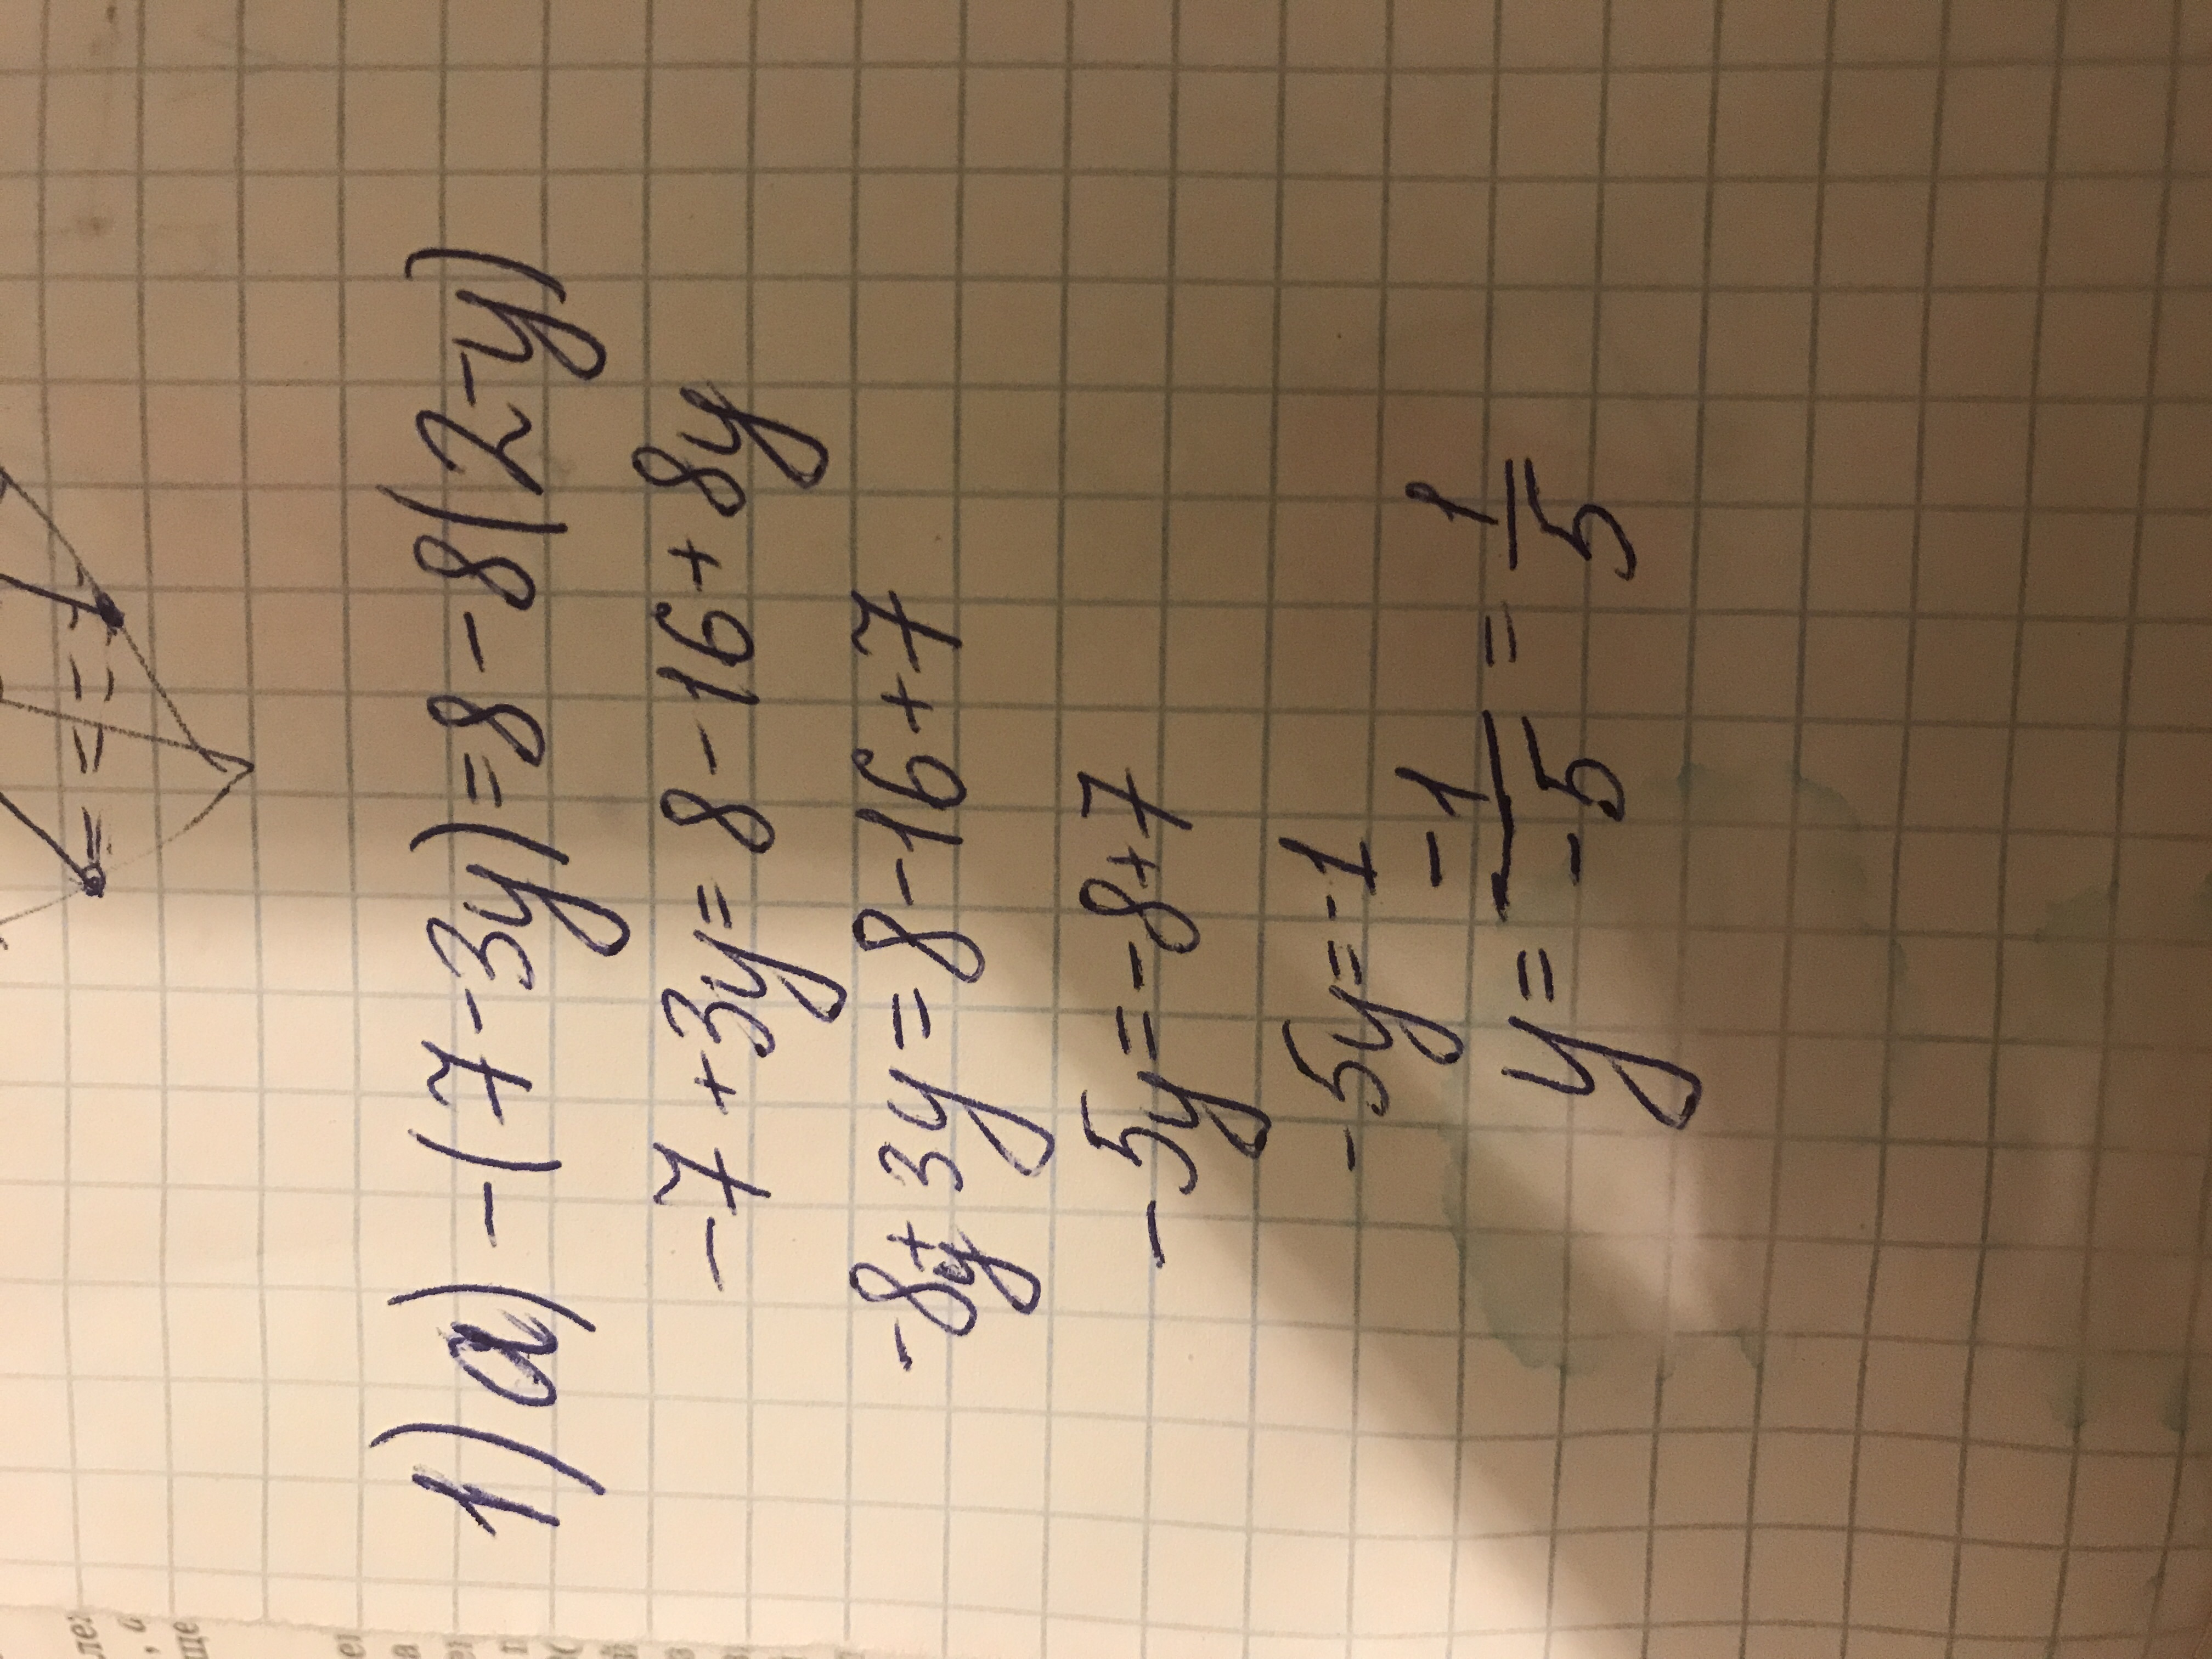 1) а) -(7-3y)=8-8(2-y)
-7+3y=8-16+8y
-8y+3y=8-16+7
-5y=-8+7
-5y=-1
y= -1/-5 = 1/5
лег
, а
ще